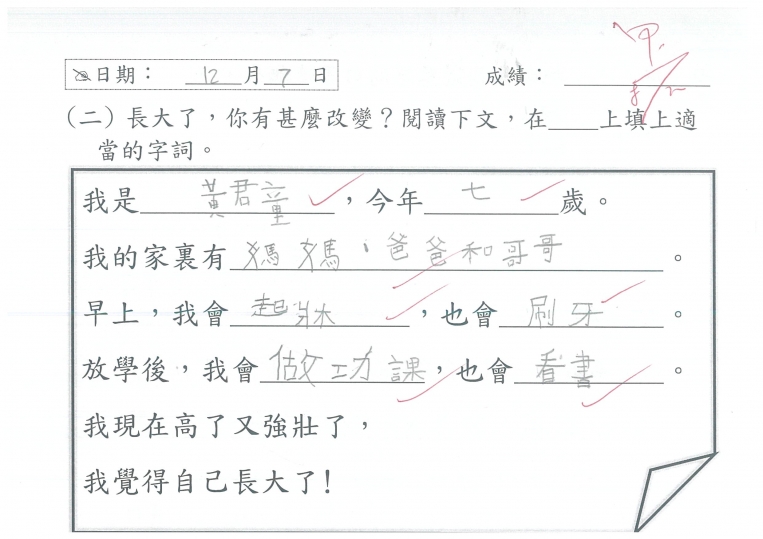 日期： 12 月 7 日 成績： 甲
（二）長大了，你有甚麼改變？閱讀下文，在____上填上適
當的字詞。
我是黃君童，今年七歲。
我的家裏有媽媽、爸爸和哥哥。
早上，我會起牀，也會刷牙。
放學後，我會做功課，也會看書。
我現在高了又強壯了，
我覺得自己長大了！